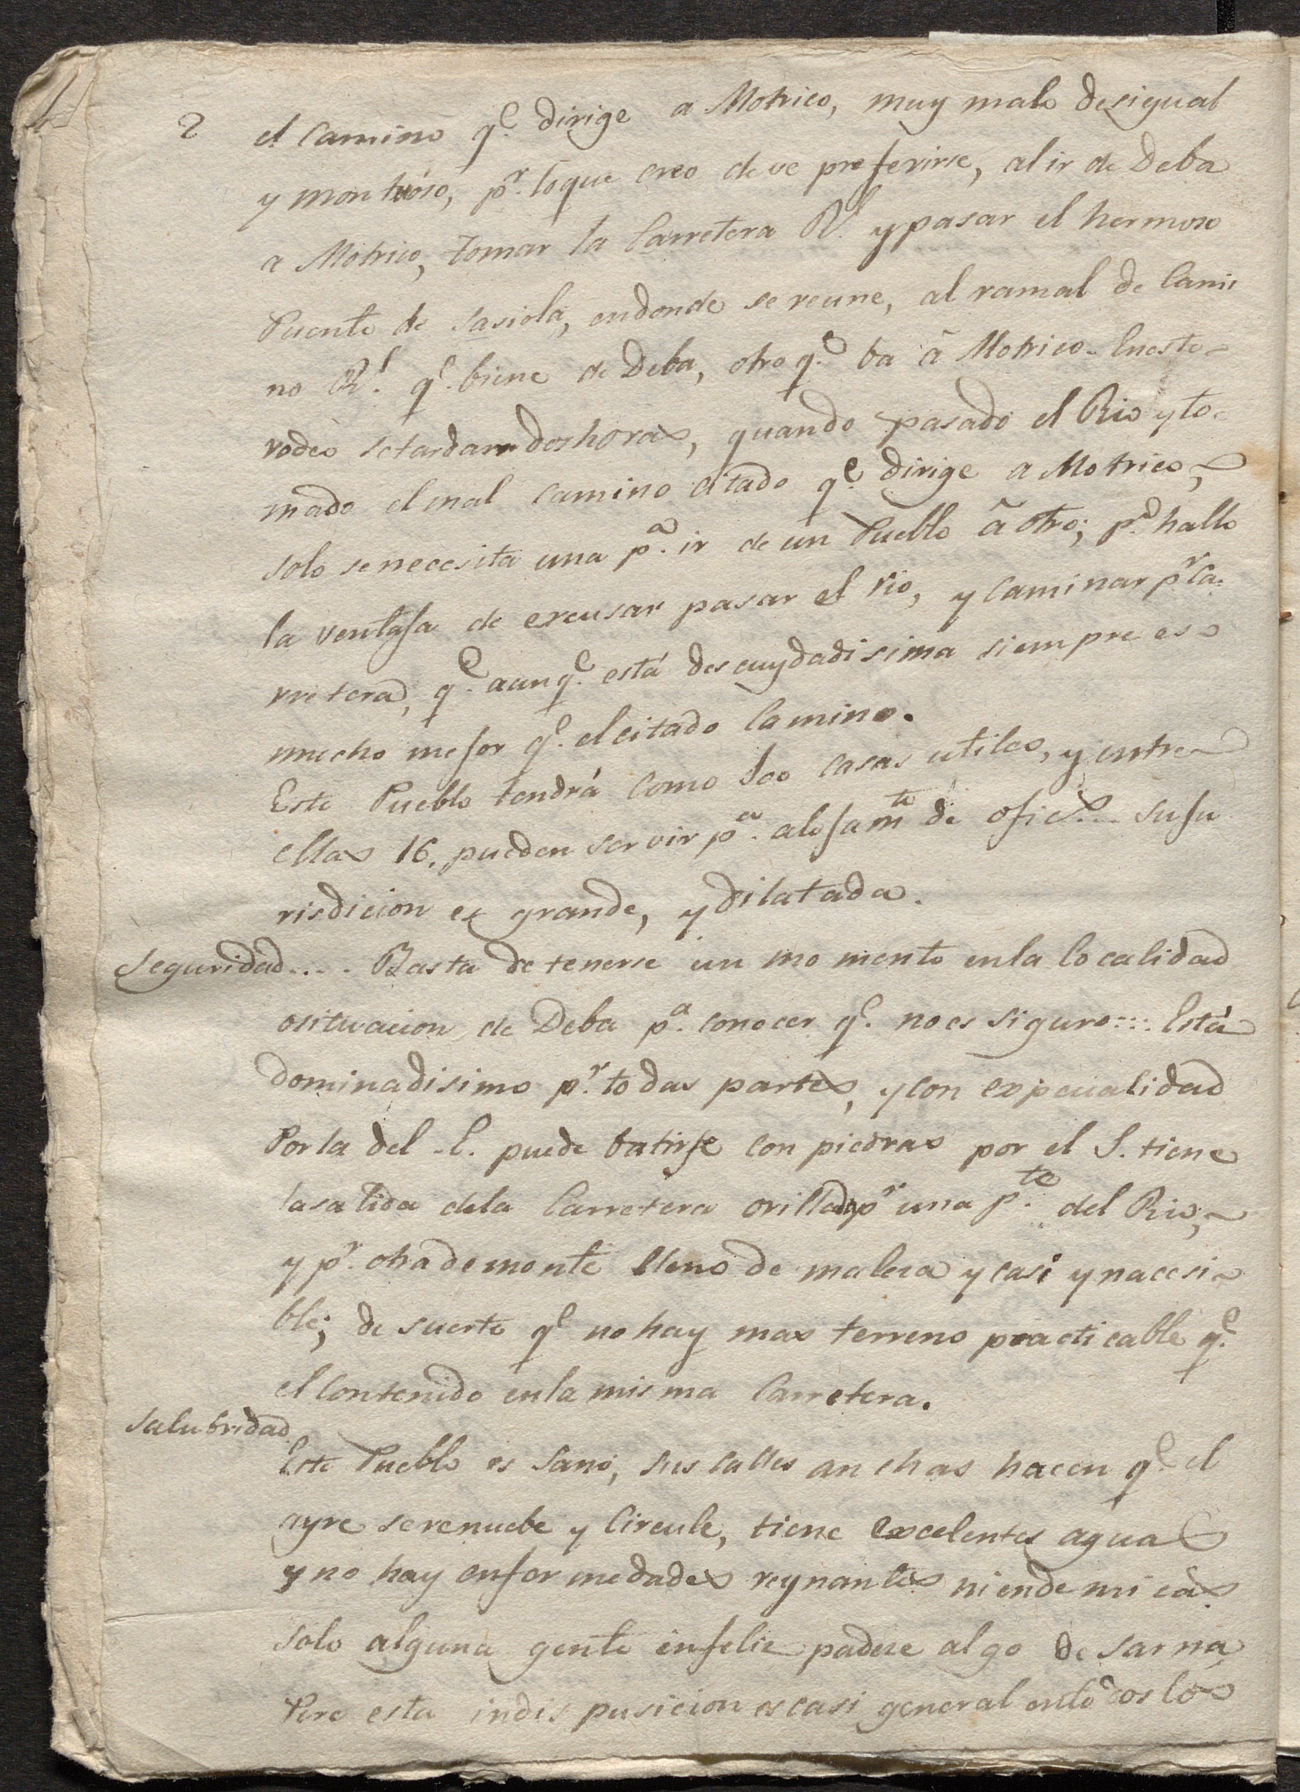 2 el Camino q.e dirige a Motrico, muy malo desigual
y montuoso, p.r loque creo deve preferirse, al ir de Deba
a Motrico, tomar la Carretera R.l y pasar el hermoso
Puente de Sasiola, endonde se reune, al ramal de Cami
no R.l q.e biene de Deba, otro q.e ba â Motrico. Eneste
rodeo setardaran doshoras, quando pasado el Rio y to-
mado elmal camino citado q.e dirige a Motrico,
solo senecesita una p.a ir de un Pueblo â otro; p.o hallo
la ventaja de excusar pasar el rio, y caminar p.r ca-
rretera, q.e aunq.e está descuydadisima siempre es
mucho mejor q.e elcitado Camino.
Este Pueblo tendrá como 100 casas utiles, y entre
ellas 16. pueden servir p.a alojam.to de ofic.s... Suju
risdicion es grande, y dilatada.
Seguridad.... Basta detenerse un momento enla localidad
osituacion de Deba p.a conocer q.e noes siguro:::. Está
dominadisimo p.r todas partes, y con expecialidad
Porla del E. puede batirse con piedras por el S. tiene
lasalida dela Carretera orillada p.r una p.te del Rio,
y p.r otrademonte lleno de maleza y casi ynaccesi-
ble; de suerte q.e nohay mas terreno practicable q.e
elContenido enla misma Carretera.
Salubridad
Este Pueblo es Sano, sus calles anchas hacen q.e el
ayre serenuebe y Circule, tiene excelentes aguas
y no hay enfermedades reynantes niendemicas
solo alguna gente infeliz padece algo de sarna
Pero esta indisposicion escasi general entodos los